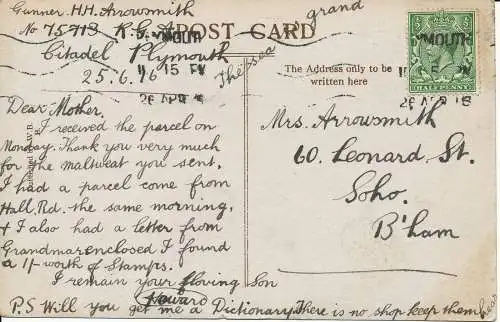 Gunner. H.H. Arrowsmith
No 75713 R.G.A
Citadel Plymouth
25.6.16
The sea is grand
POST CARD
The Address only to be
written here
HALFPENNY
YMOUTH
15 PM
26 APR 16
YMOUTH
26 APR 16
Dear Mother.
I received the parcel on
Monday. Thank you very much
for the maltweat you sent.
I had a parcel come from
Hall. Rd. the same morning.
& I also had a letter from
Grandma enclosed I found
a 1/- worth of Stamps.
I remain your loving Son
Howard
P.S Will you get me a Dictionary There is no shop keep them here
Mrs. Arrowsmith
60. Leonard St.
Soho.
B'ham